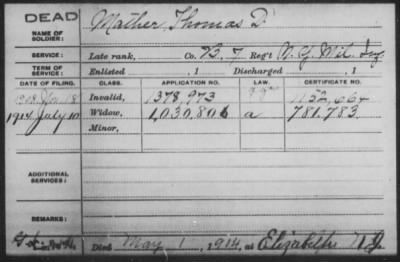 DEAD
Mather, Thomas D.
NAME OF
SOLDIER:
SERVICE:
Late rank, Co. B, 7 Reg't N. Y. Mil. Inf.
TERM OF
SERVICE:
Enlisted , 1 Discharged , 1
DATE OF FILING. CLASS. APPLICATION NO. LAW. CERTIFICATE NO.
18 Invalid, 1378,973
1914 July 10 Widow, 1,030,806 a 781,783
Minor,
ADDITIONAL
SERVICES:
REMARKS:
Died May 1, 1914, at Elizabeth N.J.